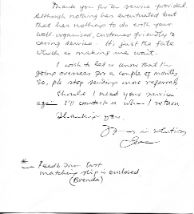 Thank you for the service provided.
Although nothing has eventuated but
that has nothing to do with your
well organised, customer friendly &
caring service. It's just the fate
which is making me wait.
I wish to let u know that I'm
going overseas for a couple of months
so, pls stop sending more referrals
Should I need your service
again I'll contact u when I return
Thanking you,
Yours in
Feedback on last
matching slip is enclosed
(Brenda)